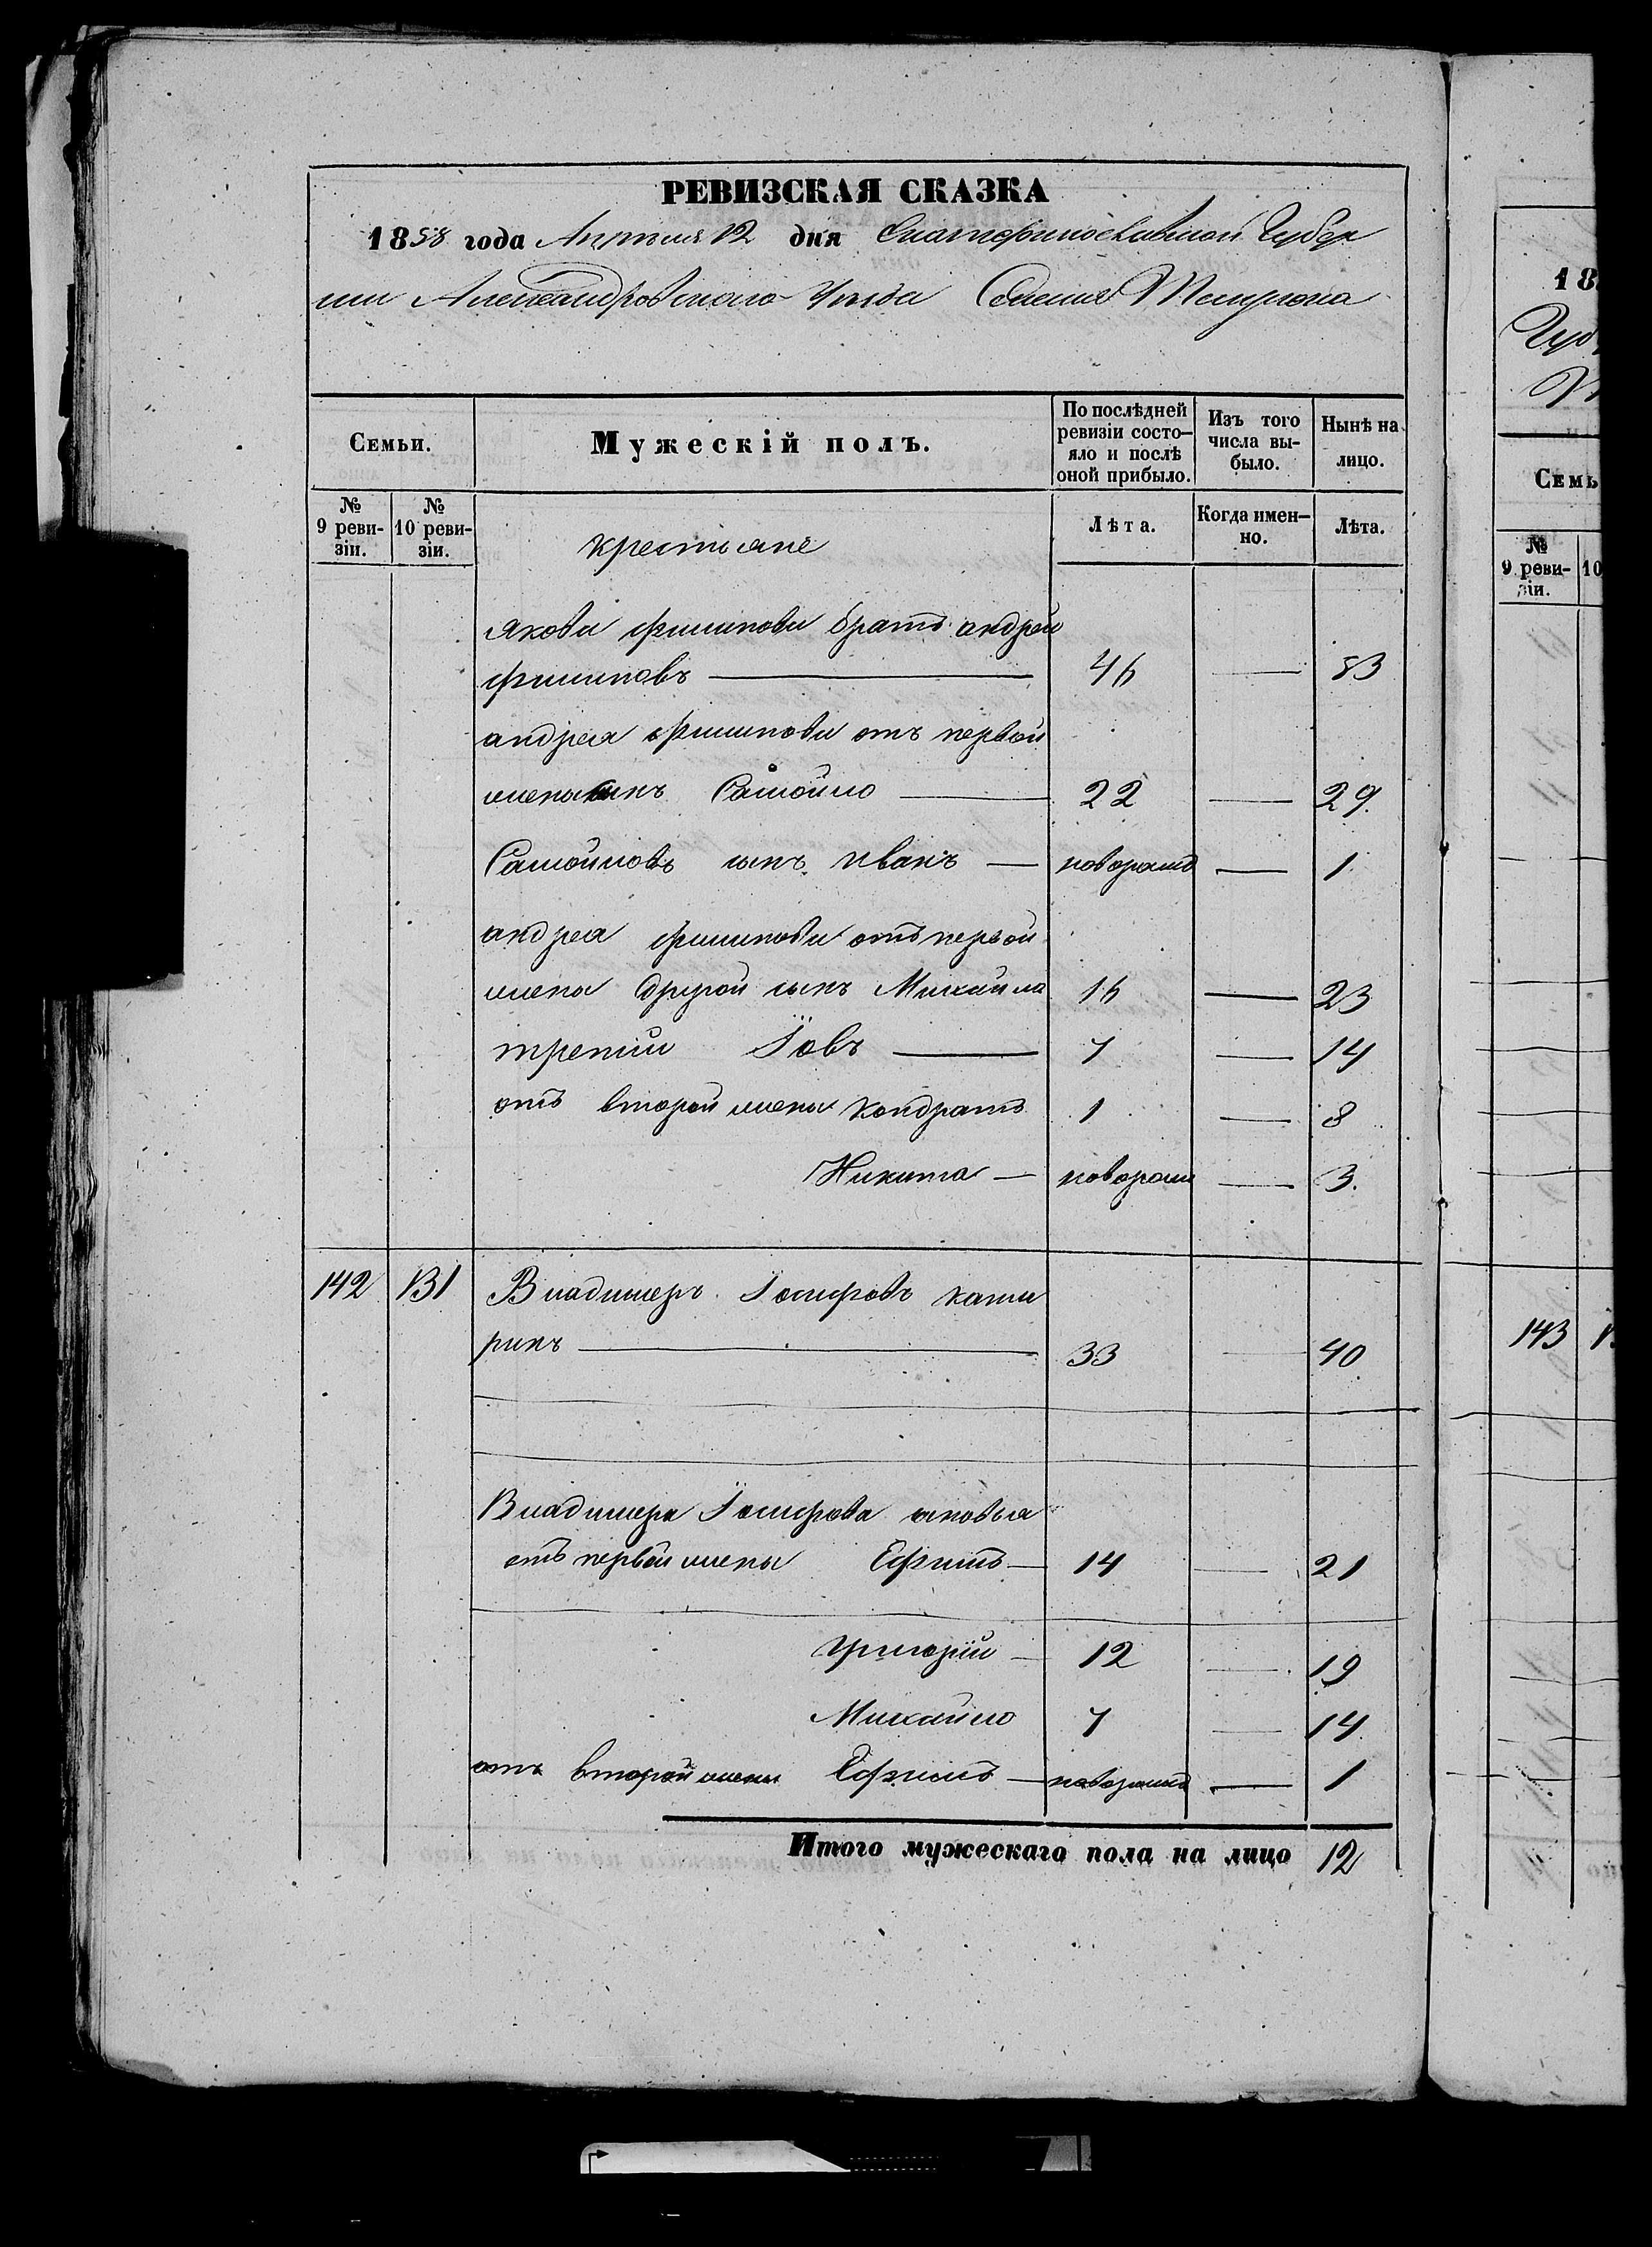 РЕВИЗСКАЯ СКАЗКА
1858 года Апреля 12 дня Екатеринославской Губер
нии Александровского Уезда Селения Темрюка
Семьи.
Мужескій полъ.
По послѣдней ревизіи состо-
яло и послѣ оной прибыло.
Изъ того числа вы-
было.
Нынѣ на лицо.
№ 9 реви-
зіи.
№ 10 реви-
зіи.
крестьяне
Лѣта.
Когда имен-
но.
Лѣта.
Якова Филипова братъ андрей
Филиповъ — 46 — 53
андрея Филипова отъ первой
жены сынъ Самойло — 22 — 29.
Самойловъ сынъ иванъ — новорожд — 1
андрея Филипова отъ первой
жены другой сынъ Михайла 16 — 23
третий Іовъ — 7 — 14
отъ второй жены Кондратъ 1 — 8
Никита — новорож — 3.
142 131 Владимеръ Іосифовъ кате
ринъ — 33 — 40
Владимера Іосифова сыновья
отъ первой жены Ефимъ — 14 — 21
Григорій — 12 — 19
Михайло 7 — 14.
отъ второй жены Ефимъ — новорожд — 1
Итого мужескаго пола на лицо 12
18
Губ
Семь
№ 9 реви-
зіи.
10
143